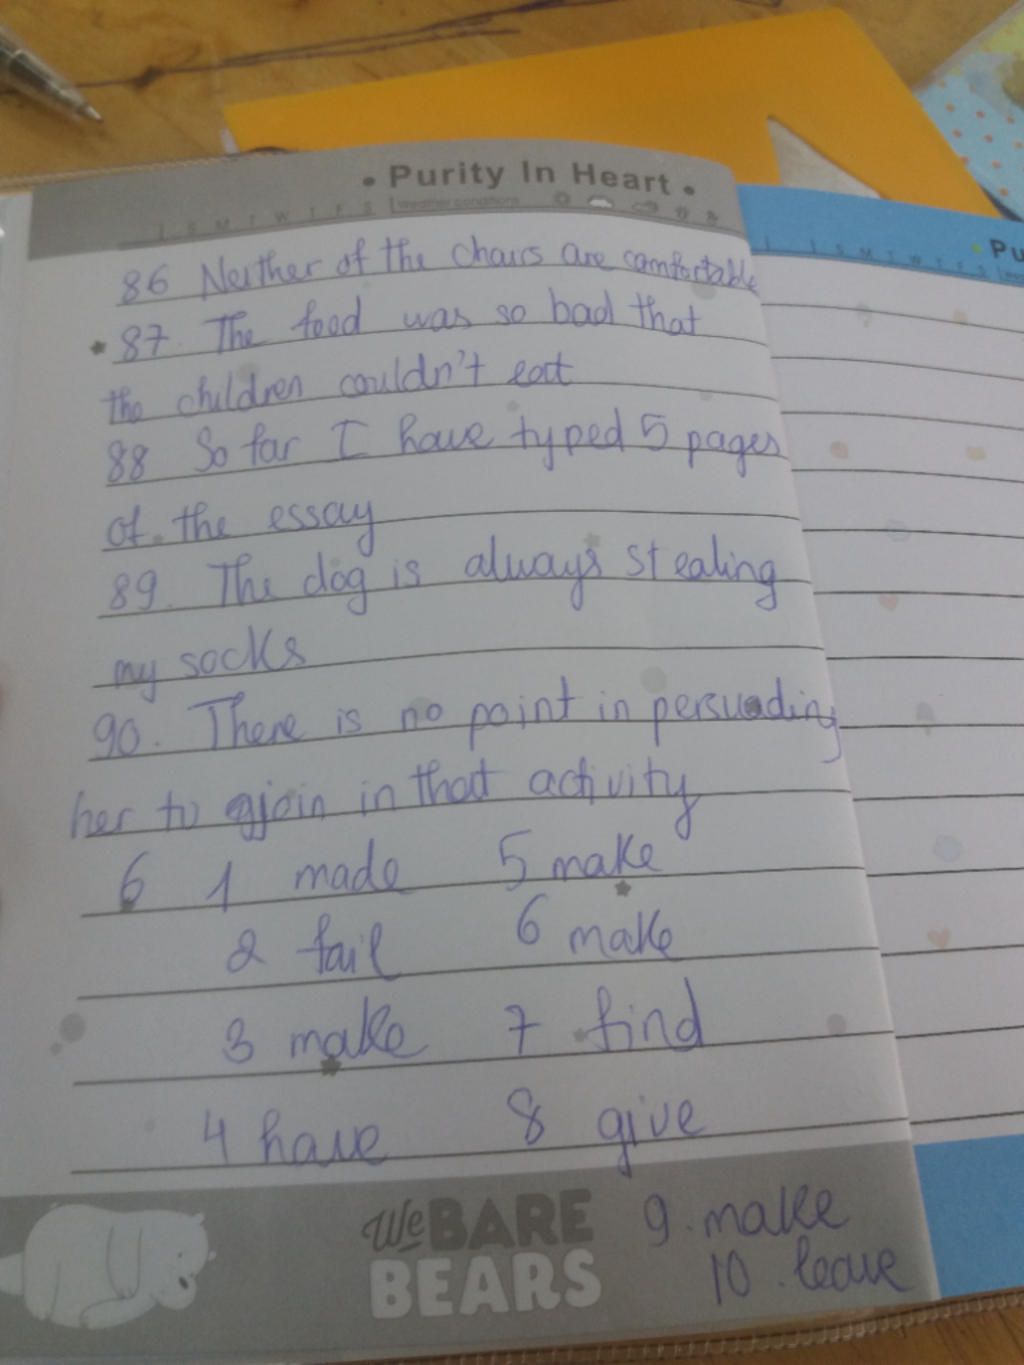 • Purity In Heart •
S M T W T F S Weather conditions
86 Neither of the chairs are comfortable
87. The food was so bad that
the children couldn't eat
88 So far I have typed 5 pages
of the essay
89. The dog is always stealing
my socks
90. There is no point in persuading
her to join in that activity
6 1 made 5 make
2 fail 6 make
3 make 7 find
4 have 8 give
We BARE
BEARS
9. make
10. leave
• Pu